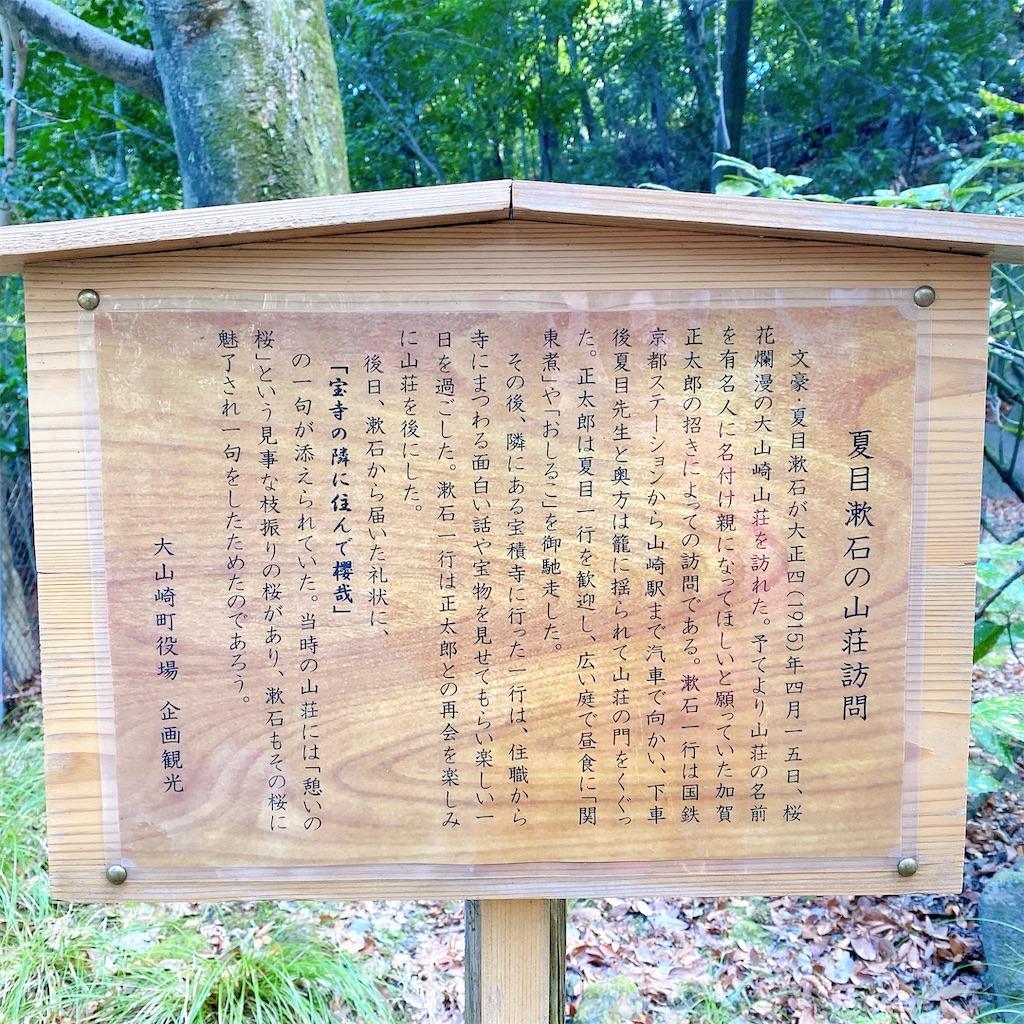 夏目漱石の山荘訪問
文豪・夏目漱石が大正四(1915)年四月一五日、桜
花爛漫の大山崎山荘を訪れた。予てより山荘の名前
を有名人に名付け親になってほしいと願っていた加賀
正太郎の招きによっての訪問である。漱石一行は国鉄
京都ステーションから山崎駅まで汽車で向かい、下車
後夏目先生と奥方は籠に揺られて山荘の門をくぐっ
た。正太郎は夏目一行を歓迎し、広い庭で昼食に「関
東煮」や「おしるこ」を御馳走した。
その後、隣にある宝積寺に行った一行は、住職から
寺にまつわる面白い話や宝物を見せてもらい楽しい一
日を過ごした。漱石一行は正太郎との再会を楽しみ
に山荘を後にした。
後日、漱石から届いた礼状に、
「宝寺の隣に住んで櫻哉」
の一句が添えられていた。当時の山荘には「憩いの
桜」という見事な枝振りの桜があり、漱石もその桜に
魅了され一句をしたためたのであろう。
大山崎町役場 企画観光